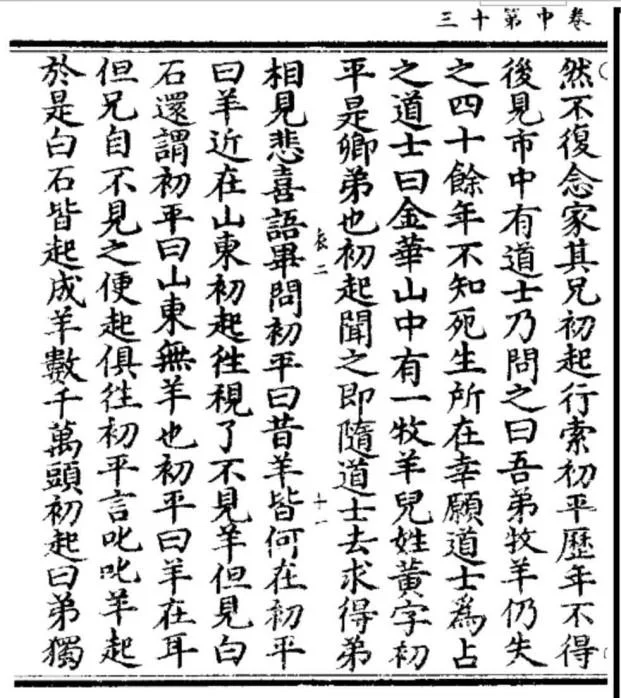 卷中第十三
然不復念家其兄初起行索初平歷年不得
後見市中有道士乃問之曰吾弟牧羊仍失
之四十餘年不知死生所在幸願道士爲占
之道士曰金華山中有一牧羊兒姓黃字初
平是卿弟也初起聞之即隨道士去求得弟
二
十一
相見悲喜語畢問初平曰昔羊皆何在初平
曰羊近在山東初起徃視了不見羊但見白
石還謂初平曰山東無羊也初平曰羊在耳
但兄自不見之便起俱徃初平言叱叱羊起
於是白石皆起成羊數千萬頭初起曰弟獨